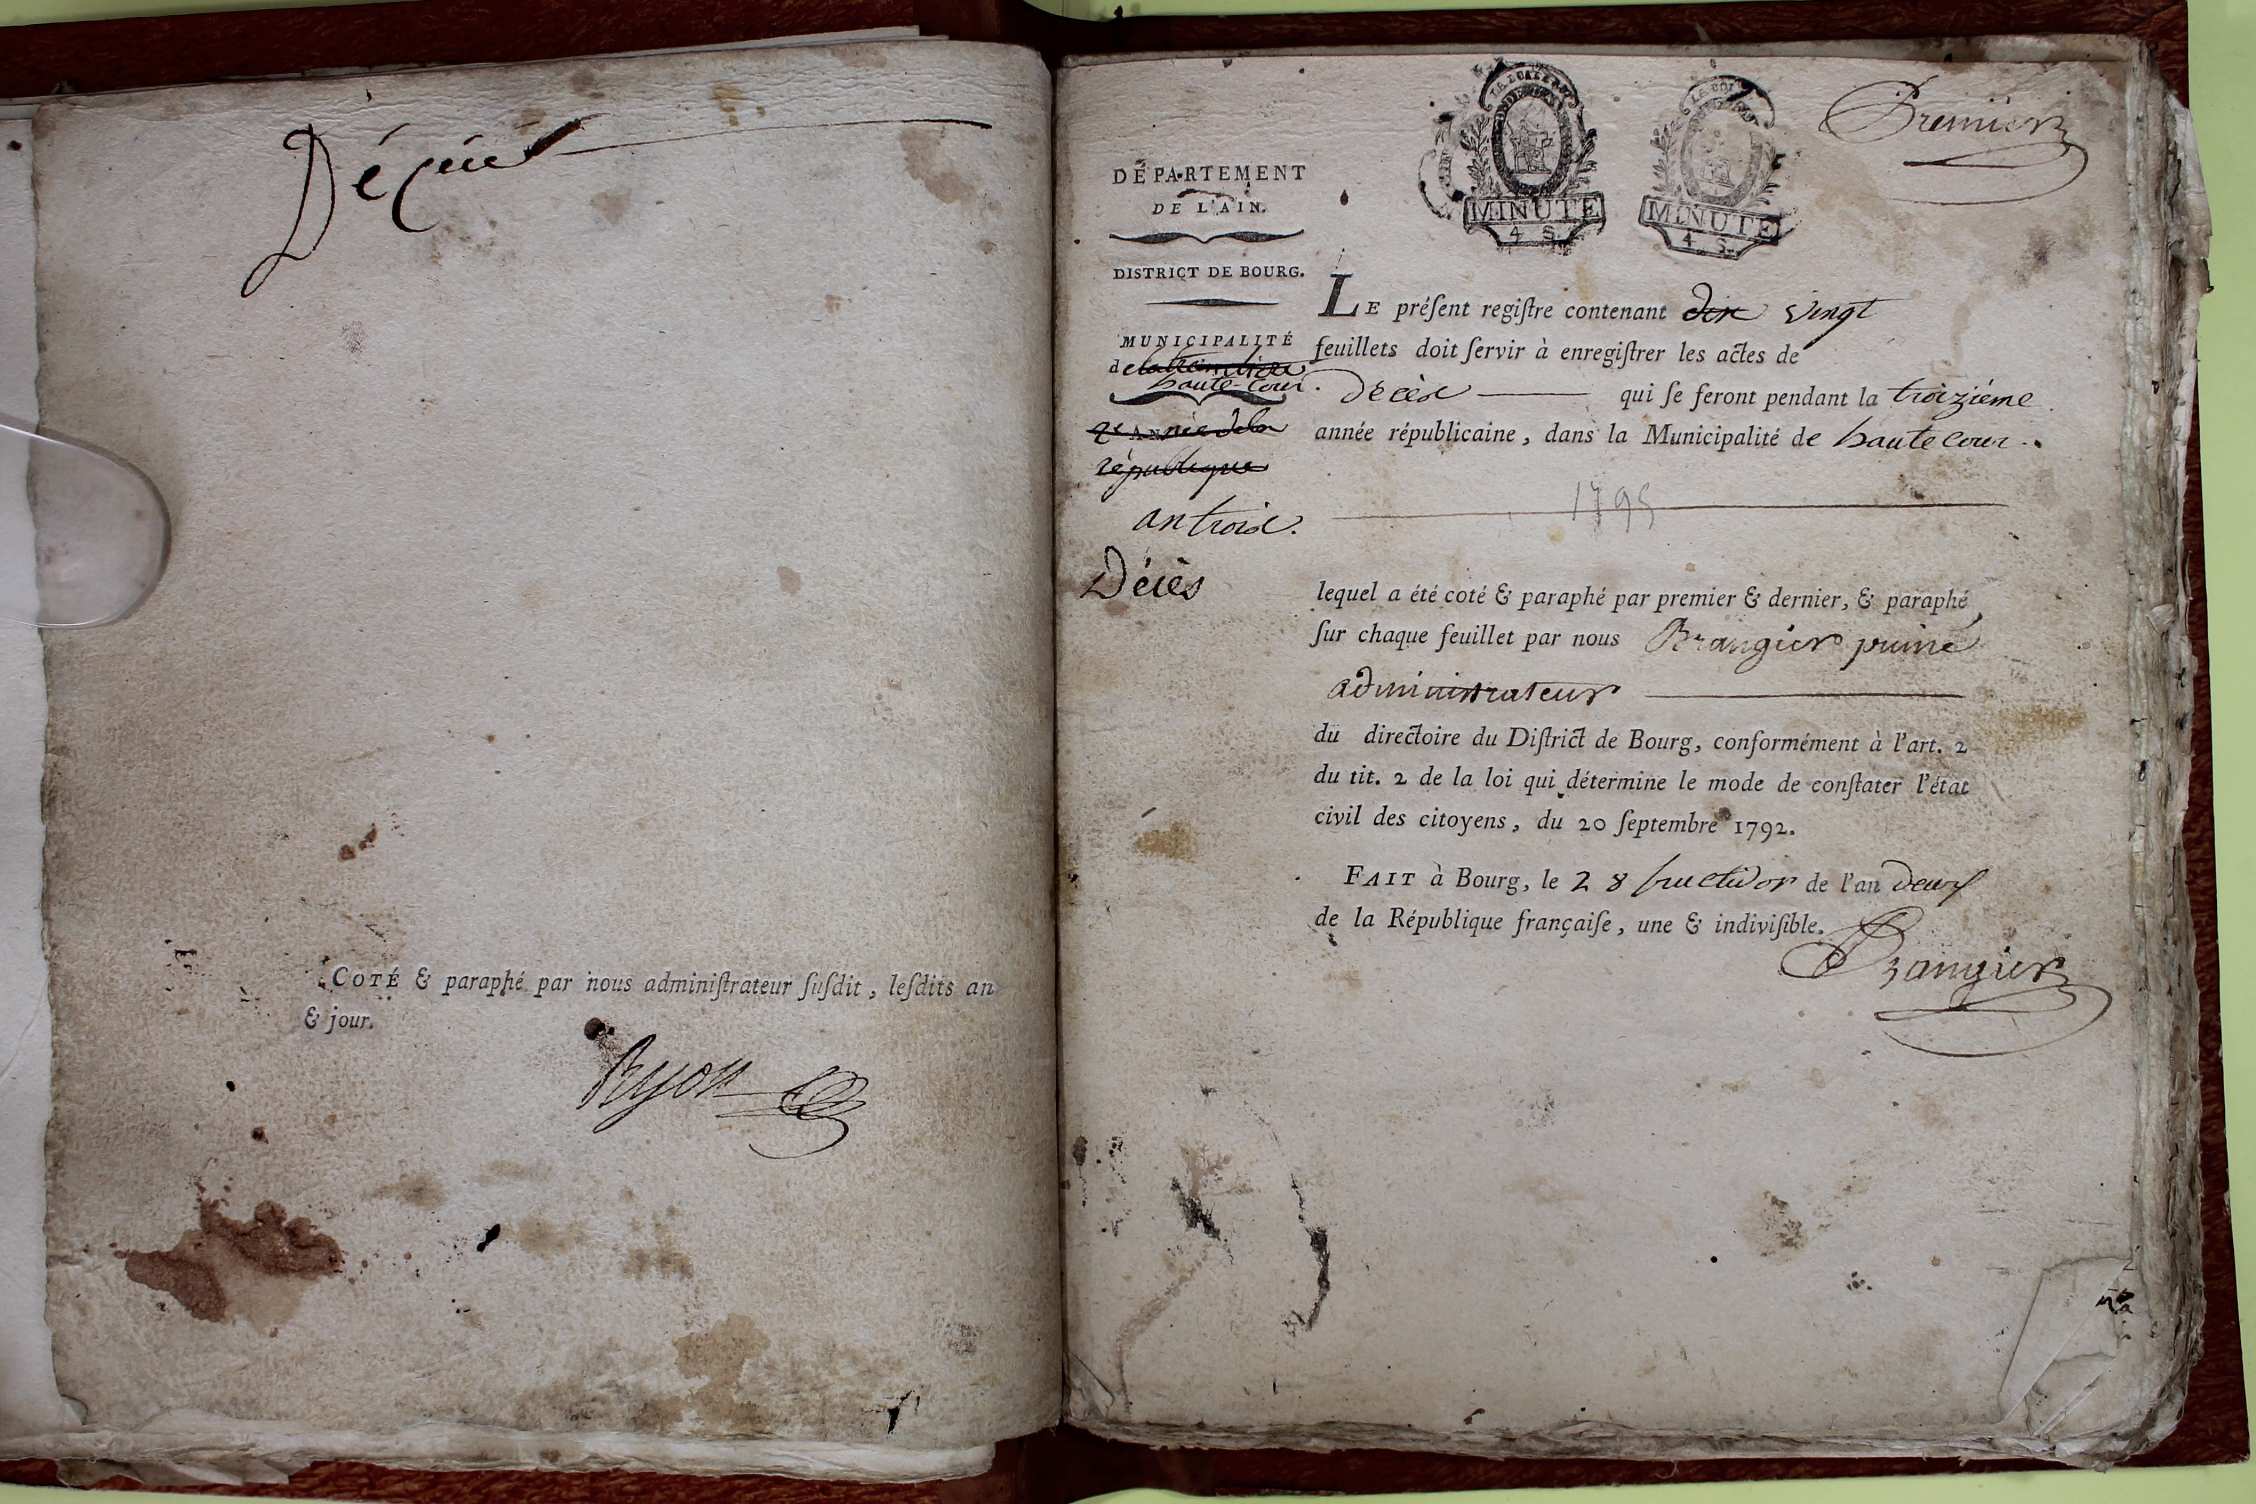 Décès
COTÉ & paraphé par nous adminiſtrateur ſuſdit, leſdits an
& jour.
Premier
MINUTE
4 S.
MINUTE
4 S.
DÉPARTEMENT
DE L'AIN.
DISTRICT DE BOURG.
MUNICIPALITÉ
de
haute-Cour.
2e ANnée de la
république
an trois.
Décès
LE préſent regiſtre contenant dix vingt
feuillets doit ſervir à enregiſtrer les actes de
décès qui ſe feront pendant la troizième
année républicaine, dans la Municipalité de hautecour.
1795
lequel a été coté & paraphé par premier & dernier, & paraphé
ſur chaque feuillet par nous Brangier puiné
administrateur
du directoire du Diſtrict de Bourg, conformément à l'art. 2
du tit. 2 de la loi qui détermine le mode de conſtater l'état
civil des citoyens, du 20 ſeptembre 1792.
FAIT à Bourg, le 28 fructidor de l'an deux
de la République françaiſe, une & indiviſible.
Brangier